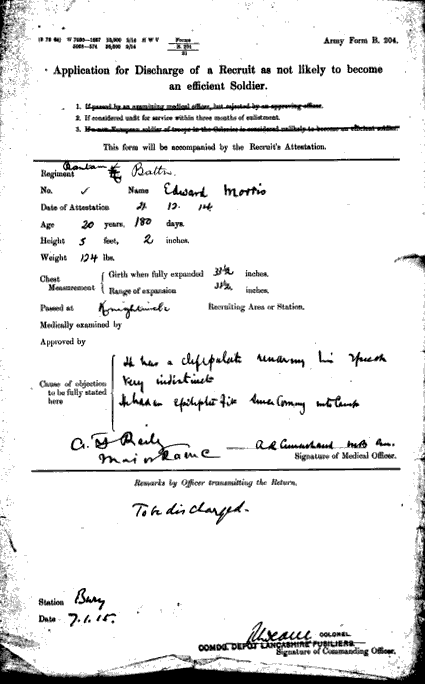 Forms
B. 204
Army Form B. 204.
Application for Discharge of a Recruit as not likely to become
an efficient Soldier.
1. If passed by an examining medical officer, but rejected by an approving officer.
2. If considered unfit for service within three months of enlistment.
3. If a non-European soldier of troops in the Colonies is considered unlikely to become an efficient soldier
This form will be accompanied by the Recruit's Attestation.
Regiment Bantam Battn.
No. ✓ Name Edward Morris
Date of Attestation 12. 14
Age 20 years, 180 days.
Height 5 feet, 2 inches.
Weight 124 lbs.
Chest Measurement { Girth when fully expanded 33½ inches.
Range of expansion inches.
Passed at Recruiting Area or Station.
Medically examined by
Approved by
Cause of objection to be fully stated here
It has a cleft palate rendering his speech
very indistinct
He had an epileptic fit since coming into Camp
Major RAMC
Signature of Medical Officer.
Remarks by Officer transmitting the Return.
To be discharged.
Station Bury
Date 7.1.15.
COLONEL
COMDG. DEPOT LANCASHIRE FUSILIERS
Signature of Commanding Officer.